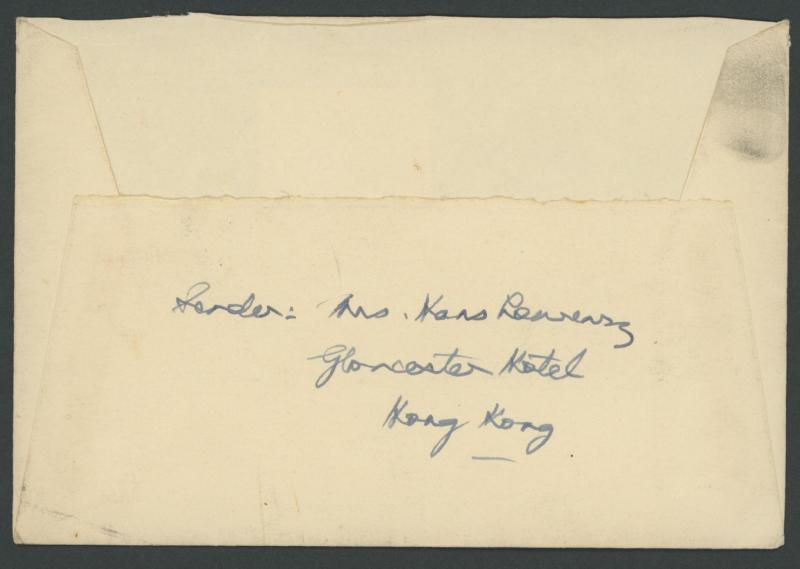 Sender: Mrs. Hans Lawrenz
Gloncester Hotel
Hong Kong